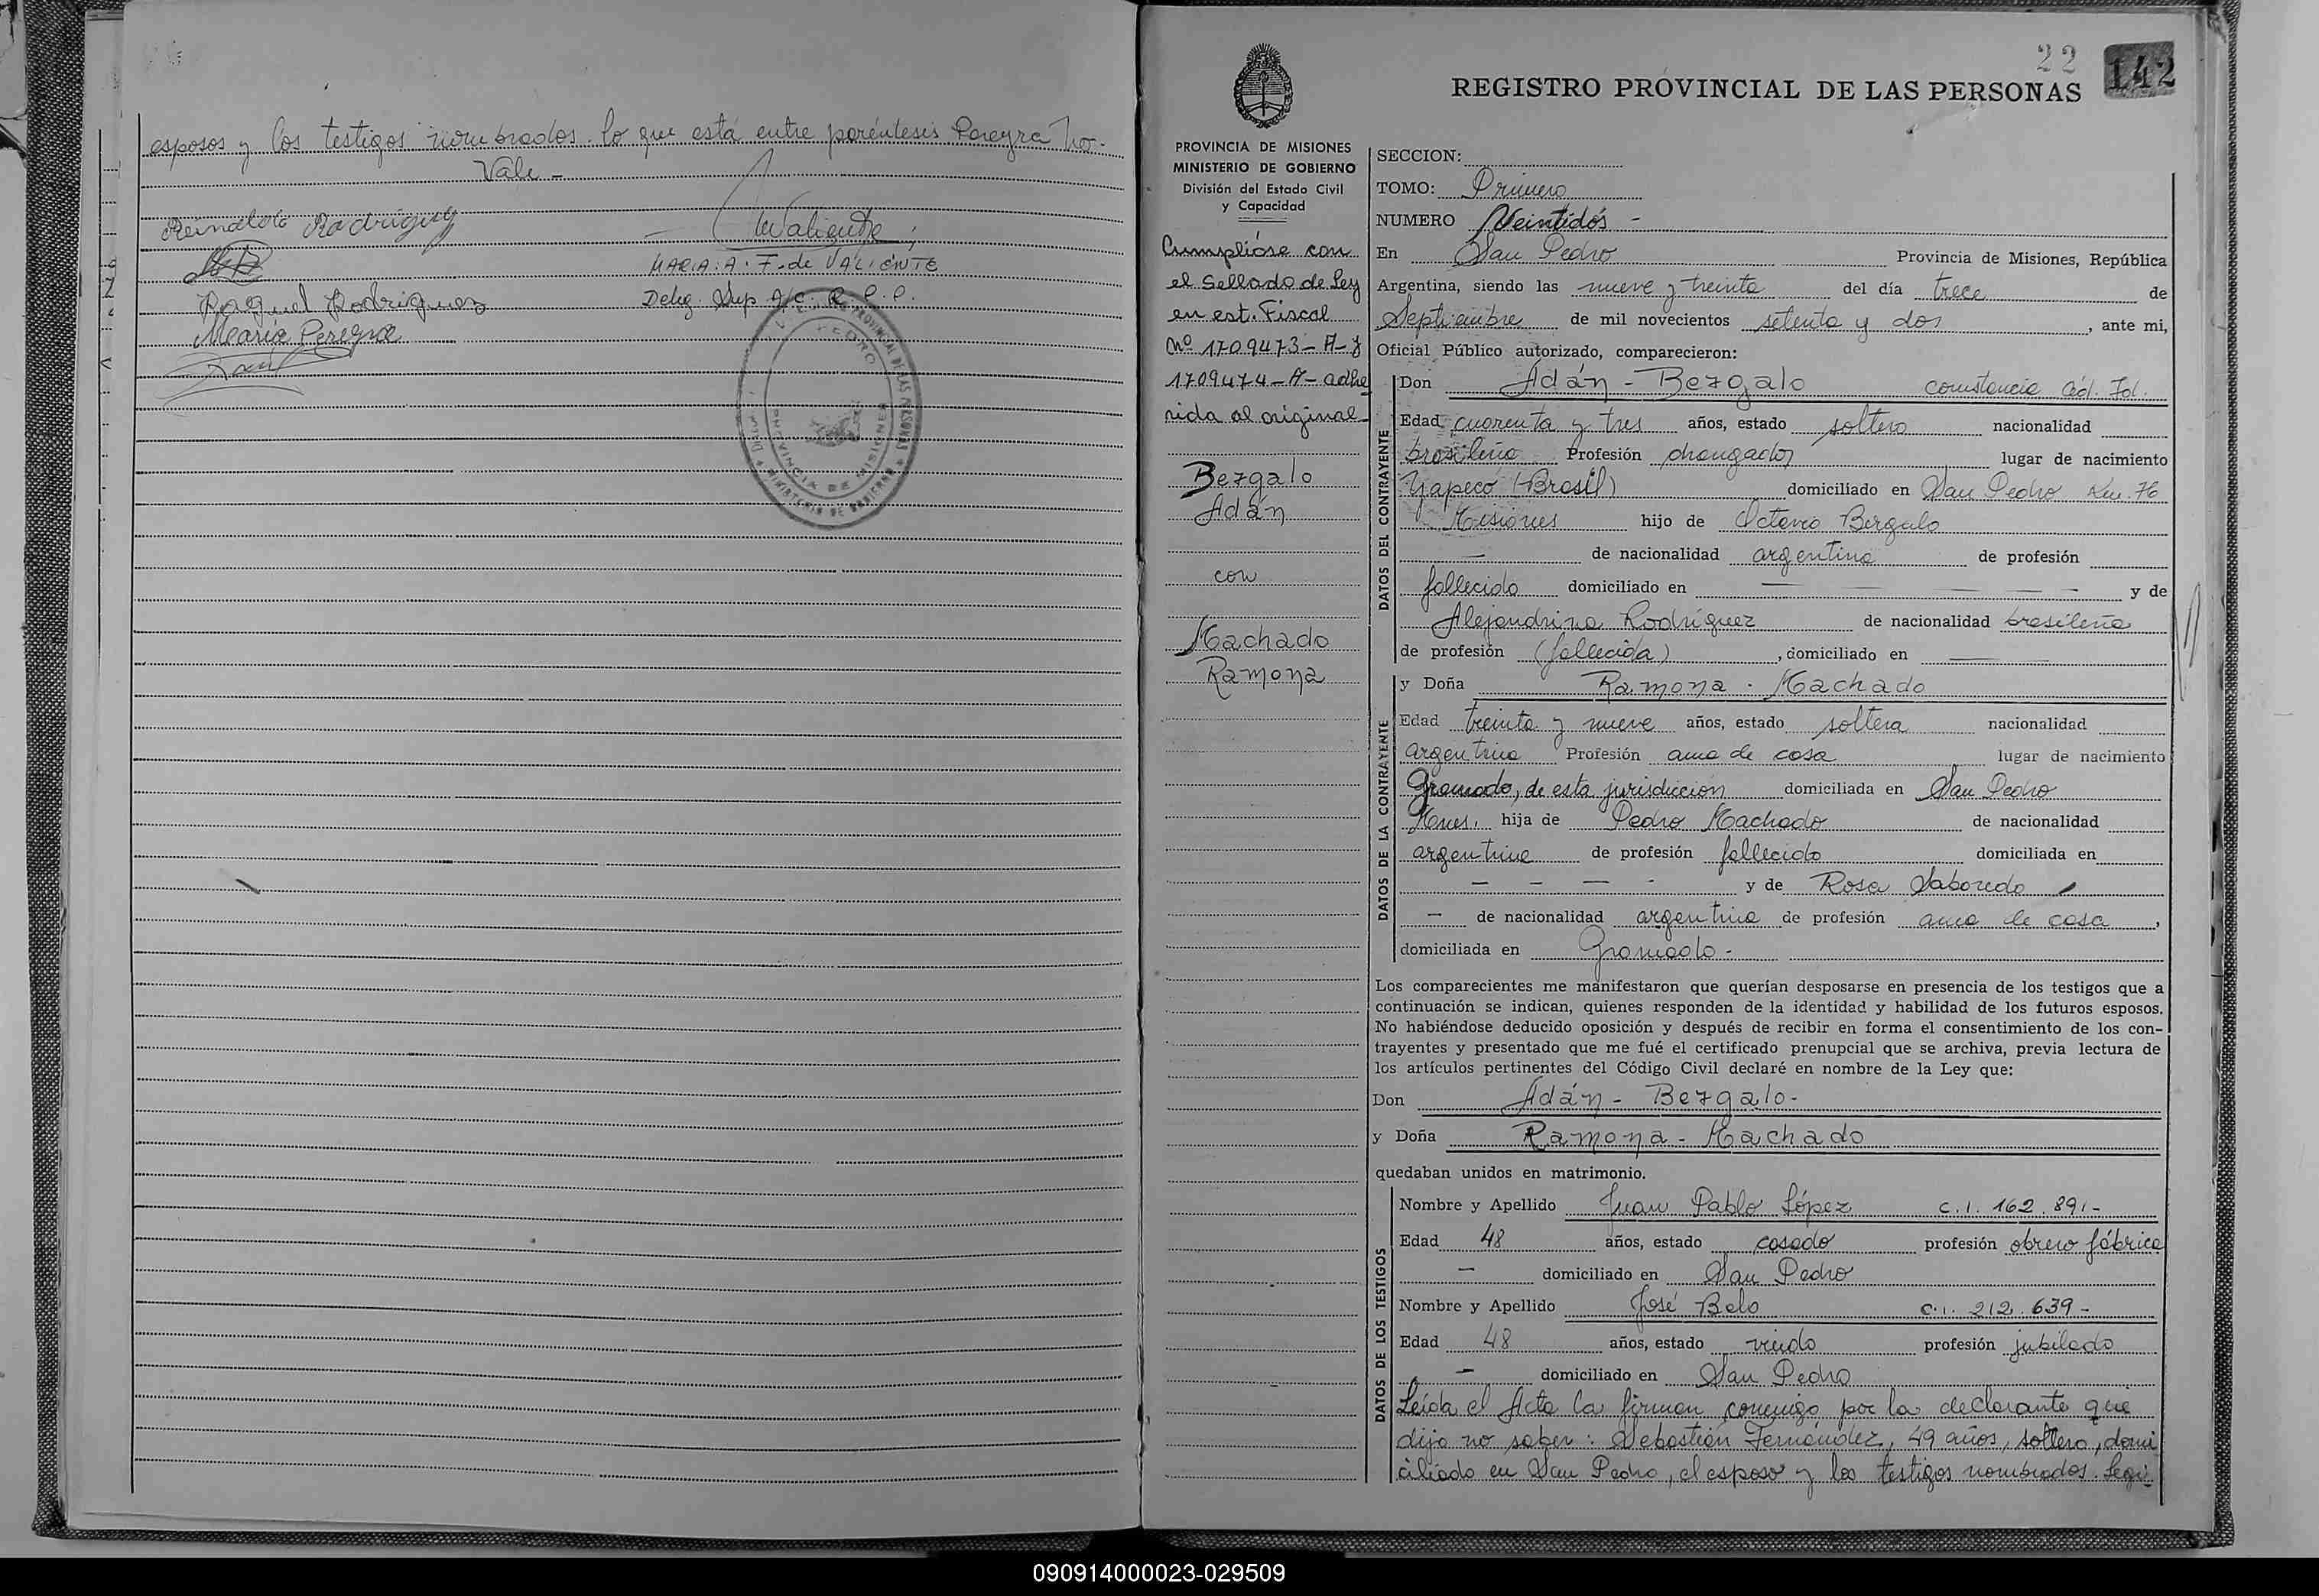 esposos y los testigos nombrados. lo que está entre paréntesis Pereyra No-
Vale -
Reinaldo Rodriguez
MARIA. A. F. de VALIENTE
Raquel Rodriguez
Deleg. Sup a/c. R. P. P.
Maria Pereyra
PROVINCIA DE MISIONES
22
142
REGISTRO PROVINCIAL DE LAS PERSONAS
PROVINCIA DE MISIONES
MINISTERIO DE GOBIERNO
División del Estado Civil
y Capacidad
Cumplióse con
el Sellado de Ley
en est. Fiscal
Nº 1709473-A-y
1709474-A- adhe
rida al original-
Bezgalo
Adán
con
Machado
Ramona
SECCION:
TOMO: Primero
NUMERO Veintidós -
En San Pedro Provincia de Misiones, República
Argentina, siendo las nueve y treinta del día trece de
Septiembre de mil novecientos setenta y dos, ante mi,
Oficial Público autorizado, comparecieron:
DATOS DEL CONTRAYENTE
Don Adán - Bezgalo constancia Céd. Fol.
Edad cuarenta y tres años, estado soltero nacionalidad
brasileña Profesión changador lugar de nacimiento
Yapecó (Brasil) domiciliado en San Pedro Km. 76
Misiones hijo de Octavio Bergalo
— de nacionalidad argentina de profesión
fallecido domiciliado en — — — — y de
Alejandrina Rodríguez de nacionalidad brasileña
de profesión (fallecida), domiciliado en —
DATOS DE LA CONTRAYENTE
y Doña Ramona - Machado
Edad treinta y nueve años, estado soltera nacionalidad
argentina Profesión ama de casa lugar de nacimiento
Gramado, de esta jurisdicción domiciliada en San Pedro
Mnes. hija de Pedro Machado de nacionalidad
argentina de profesión fallecido domiciliada en
— — — - y de Rosa Saboredo
— de nacionalidad argentina de profesión ama de casa,
domiciliada en Gramado -
Los comparecientes me manifestaron que querían desposarse en presencia de los testigos que a
continuación se indican, quienes responden de la identidad y habilidad de los futuros esposos.
No habiéndose deducido oposición y después de recibir en forma el consentimiento de los con-
trayentes y presentado que me fué el certificado prenupcial que se archiva, previa lectura de
los artículos pertinentes del Código Civil declaré en nombre de la Ley que:
Don Adán - Bezgalo -
y Doña Ramona - Machado
quedaban unidos en matrimonio.
DATOS DE LOS TESTIGOS
Nombre y Apellido Juan Pablo López C.I. 162.891-
Edad 48 años, estado casado profesión obrero fábrica
— domiciliado en San Pedro
Nombre y Apellido José Belo C.I. 212.639-
Edad 48 años, estado viudo profesión jubilado
— domiciliado en San Pedro
Leída el Acta la firman conmigo por la declarante que
dijo no saber: Sebastián Fernández, 49 años, soltero, domi
ciliado en San Pedro, el esposo y los testigos nombrados. Segi
090914000023-029509